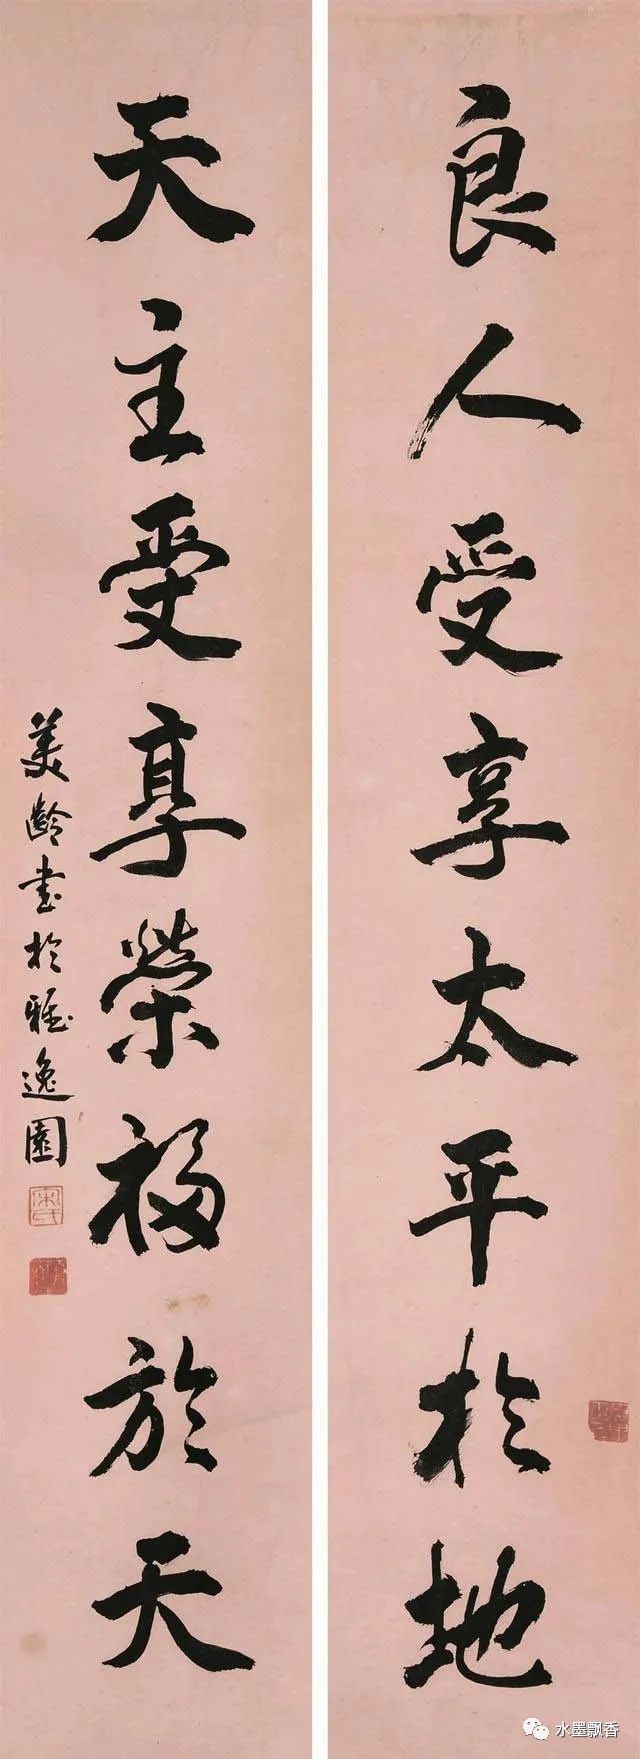 良人受享太平於地
天主受享榮福於天
美齡書於雅逸園
宋氏
水墨飘香